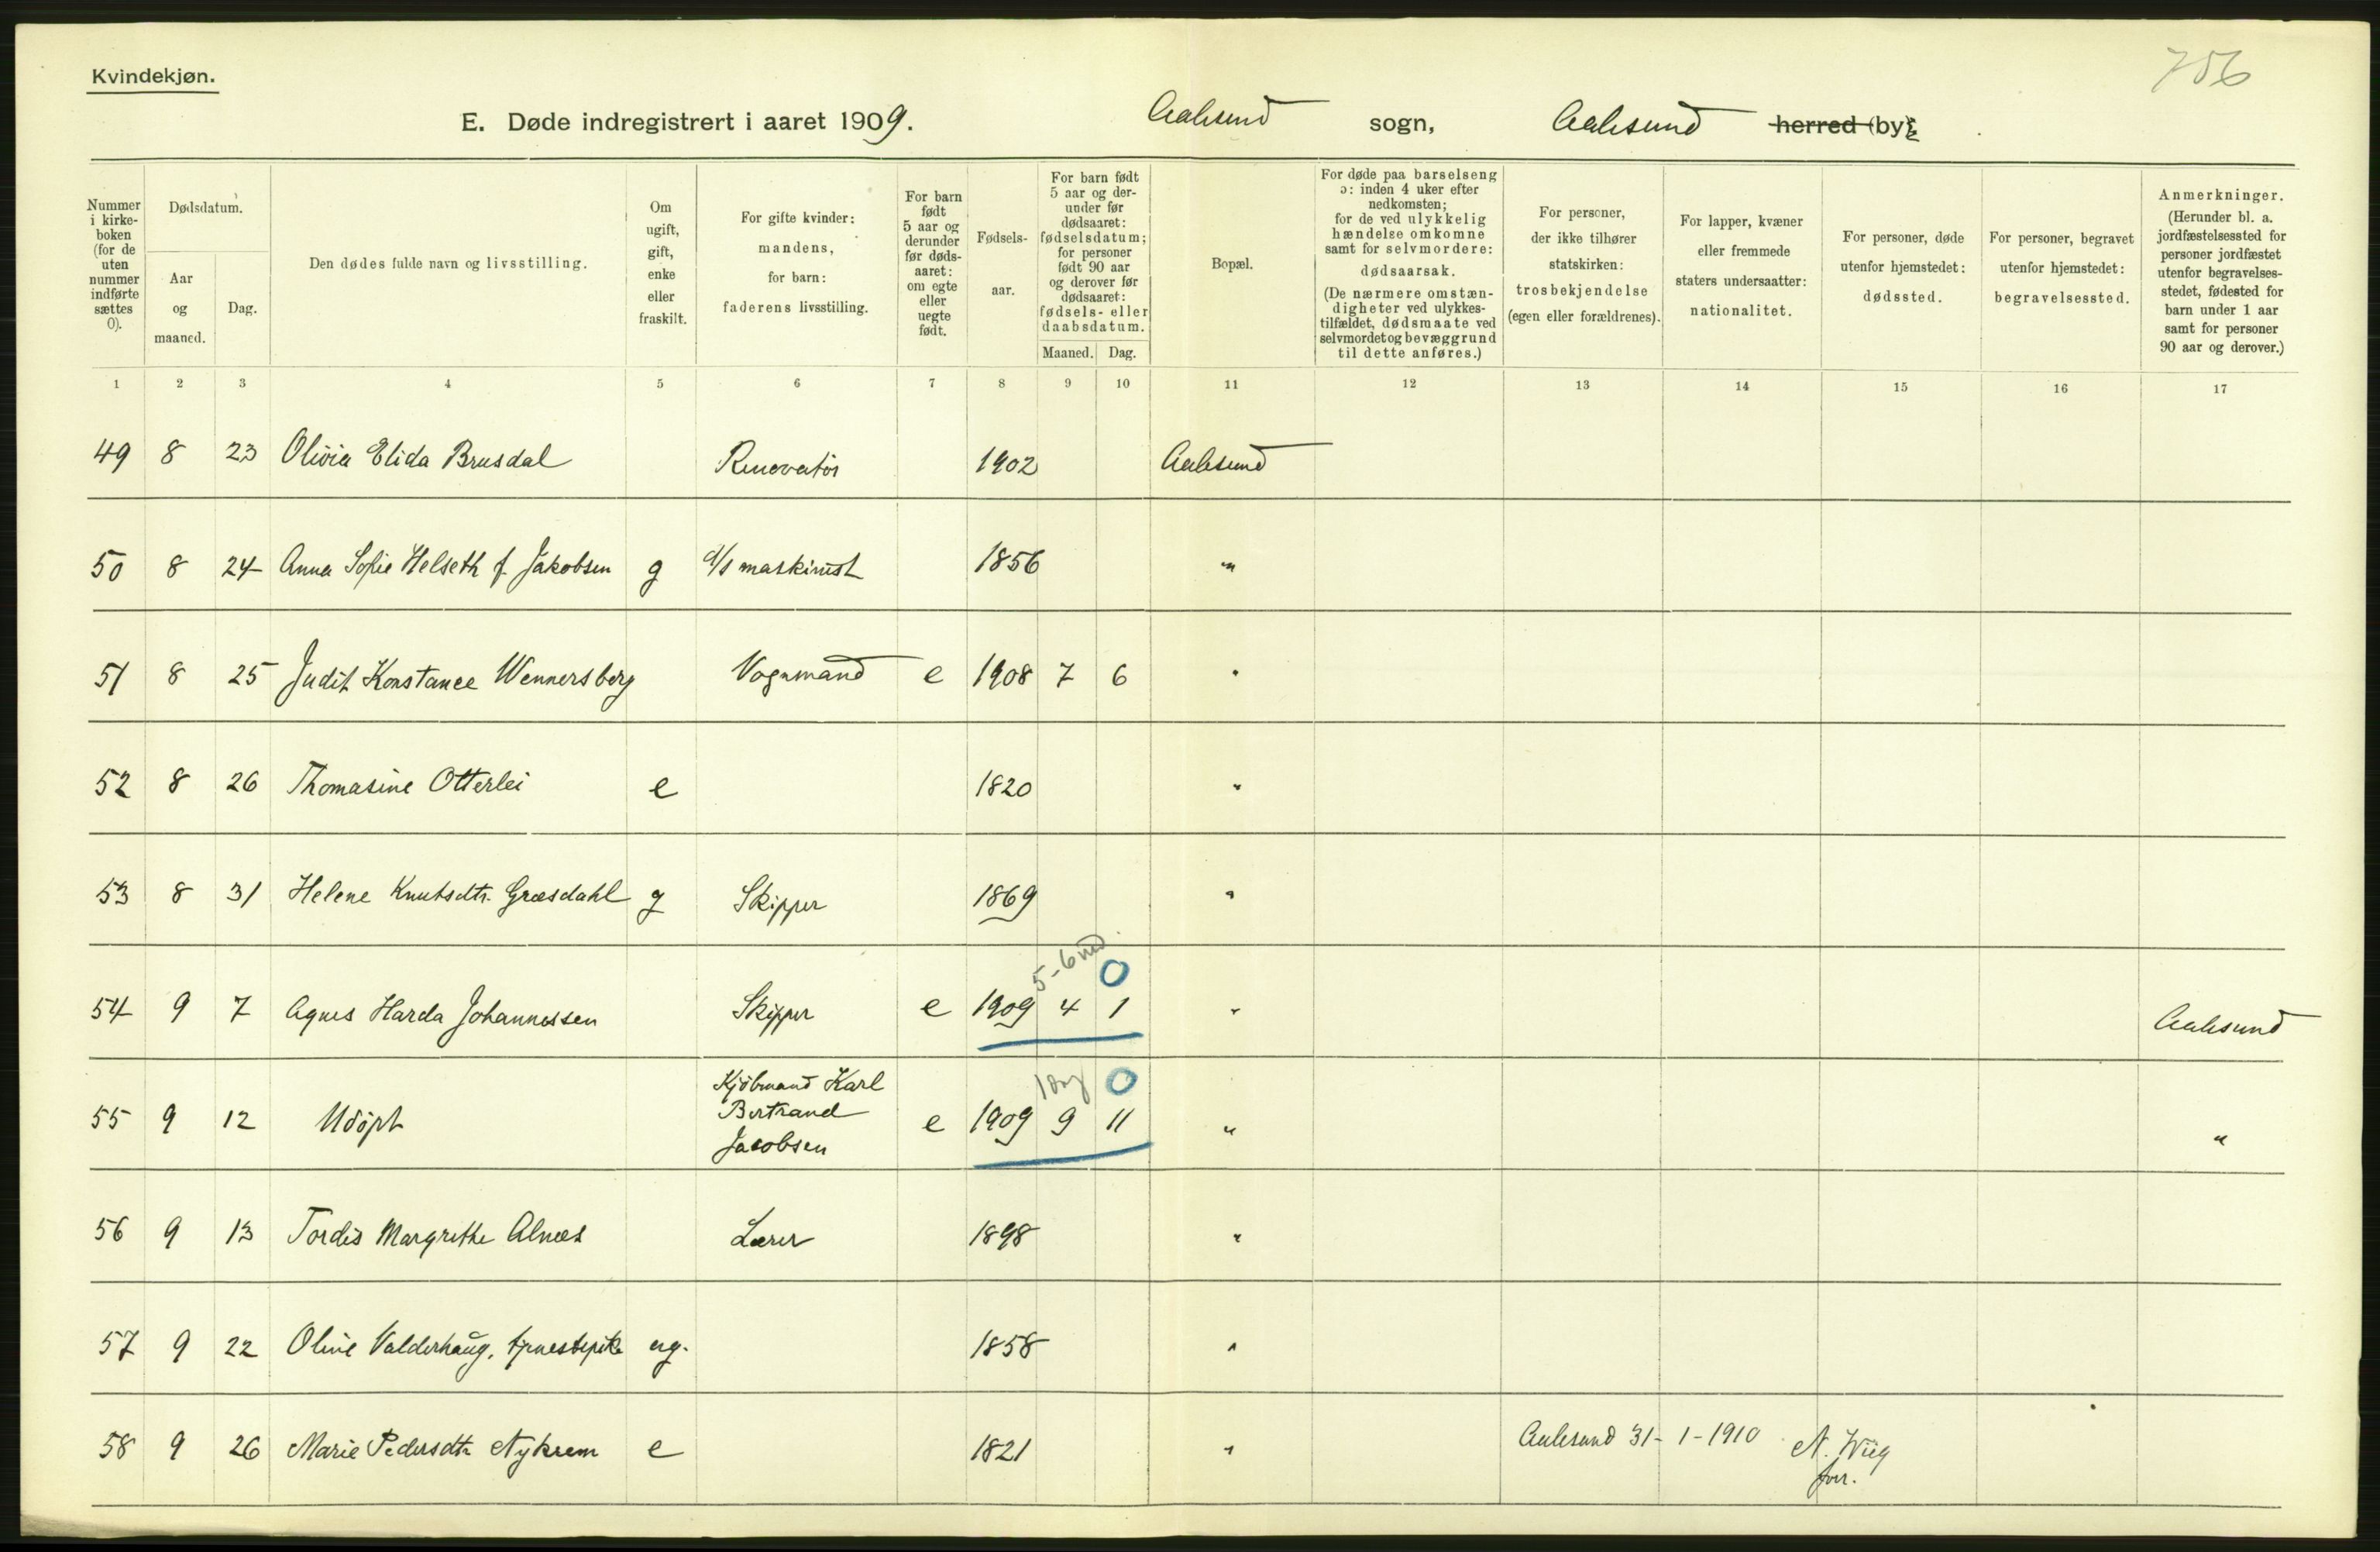 Kvindekjøn.
756
E. Døde indregistrert i aaret 1909. Aalesund sogn, Aalesund herred (by).
Nummer i kirkeboken (for de uten nummer indførte sættes 0).
Dødsdatum.
Aar og maaned.
Dag.
Den dødes fulde navn og livsstilling.
Om ugift, gift, enke eller fraskilt.
For gifte kvinder: mandens, for barn: faderens livsstilling.
For barn født 5 aar og derunder før dødsaaret: om egte eller uegte født.
Fødselsaar.
For barn født 5 aar og derunder før dødsaaret: fødselsdatum; for personer født 90 aar og derover før dødsaaret: fødsels- eller daabsdatum.
Maaned. Dag.
Bopæl.
For døde paa barselseng ɔ: inden 4 uker efter nedkomsten; for de ved ulykkelig hændelse omkomne samt for selvmordere: dødsaarsak. (De nærmere omstændigheter ved ulykkestilfældet, dødsmaate ved selvmordet og bevæggrund til dette anføres.)
For personer, der ikke tilhører statskirken: trosbekjendelse (egen eller forældrenes).
For lapper, kvæner eller fremmede staters undersaatter: nationalitet.
For personer, døde utenfor hjemstedet: dødssted.
For personer, begravet utenfor hjemstedet: begravelsessted.
Anmerkninger. (Herunder bl. a. jordfæstelsessted for personer jordfæstet utenfor begravelsesstedet, fødested for barn under 1 aar samt for personer 90 aar og derover.)
1 2 3 4 5 6 7 8 9 10 11 12 13 14 15 16 17
49 8 23 Olivia Elida Brusdal Renovatør 1902 Aalesund
50 8 24 Anna Sofie Helseth f. Jakobsen g d/s maskinist 1856 "
51 8 25 Judit Konstance Wennersberg Vognmand e 1908 7 6 "
52 8 26 Thomasine Otterlei e 1820 "
53 8 31 Helene Knutsdtr. Græsdahl g Skipper 1869 "
5-6 md 0
54 9 7 Agnes Harda Johannessen Skipper e 1909 4 1 " Aalesund
Kjøbmand Karl 1 dag 0
55 9 12 Udøpt Bertrand e 1909 9 11 " "
Jacobsen
56 9 13 Tordis Margrethe Alnæs Lærer 1898 "
57 9 22 Oline Valderhaug, tjenestepike ug. 1858 "
58 9 26 Marie Pedersdtr Nykrem e 1821 " Aalesund 31-1-1910 N. Wiig
forr.